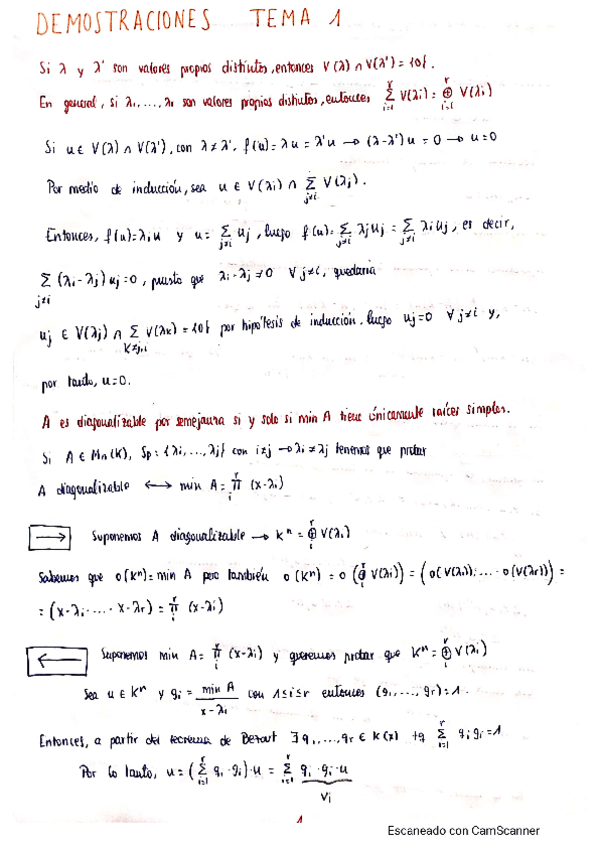 DEMOSTRACIONES TEMA 1
Si λ y λ' son valores propios distintos, entonces V(λ) ∩ V(λ') = {0}.
En general, si λ₁, ..., λr son valores propios distintos, entonces Σ_{i=1}^{r} V(λi) = ⊕_{i=1}^{r} V(λi)
Si u ∈ V(λ) ∩ V(λ'), con λ ≠ λ', f(u) = λu = λ'u → (λ-λ')u = 0 → u = 0
Por medio de inducción, sea u ∈ V(λi) ∩ Σ_{j≠i} V(λj).
Entonces, f(u) = λiu y u = Σ_{j≠i} uj, luego f(u) = Σ_{j≠i} λjuj = Σ_{j≠i} λiuj, es decir,
Σ_{j≠i} (λi-λj)uj = 0, puesto que λi-λj ≠ 0 ∀j≠i, quedaría
uj ∈ V(λj) ∩ Σ_{k≠j,i} V(λk) = {0} por hipótesis de inducción, luego uj = 0 ∀j≠i y,
por tanto, u=0.
A es diagonalizable por semejanza si y solo si min A tiene únicamente raíces simples.
Si A ∈ Mn(K), Sp: {λi, ..., λj} con i≠j → λi ≠ λj tenemos que probar
A diagonalizable ⟷ min A = π_{i}^{r} (x-λi)
→ Suponemos A diagonalizable → Kⁿ = ⊕_{i}^{r} V(λi)
Sabemos que o(Kⁿ) = min A pero también o(Kⁿ) = o(⊕_{i}^{r} V(λi)) = (o(V(λi)); ... · o(V(λr))) =
= (x-λi · ... · x-λr) = π_{i}^{r} (x-λi)
← Suponemos min A = π_{i}^{r} (x-λi) y queremos probar que Kⁿ = ⊕_{i}^{r} V(λi)
Sea u ∈ Kⁿ y gi = min A / x-λi con 1≤i≤r entonces (gi, ..., gr) = 1.
Entonces, a partir del teorema de Bezout ∃ q₁, ..., qr ∈ K(x) tq Σ_{i=1}^{r} qigi = 1
Por lo tanto, u = (Σ_{i=1}^{r} qi · gi) · u = Σ_{i=1}^{r} qi · gi · u
vi
1
Escaneado con CamScanner